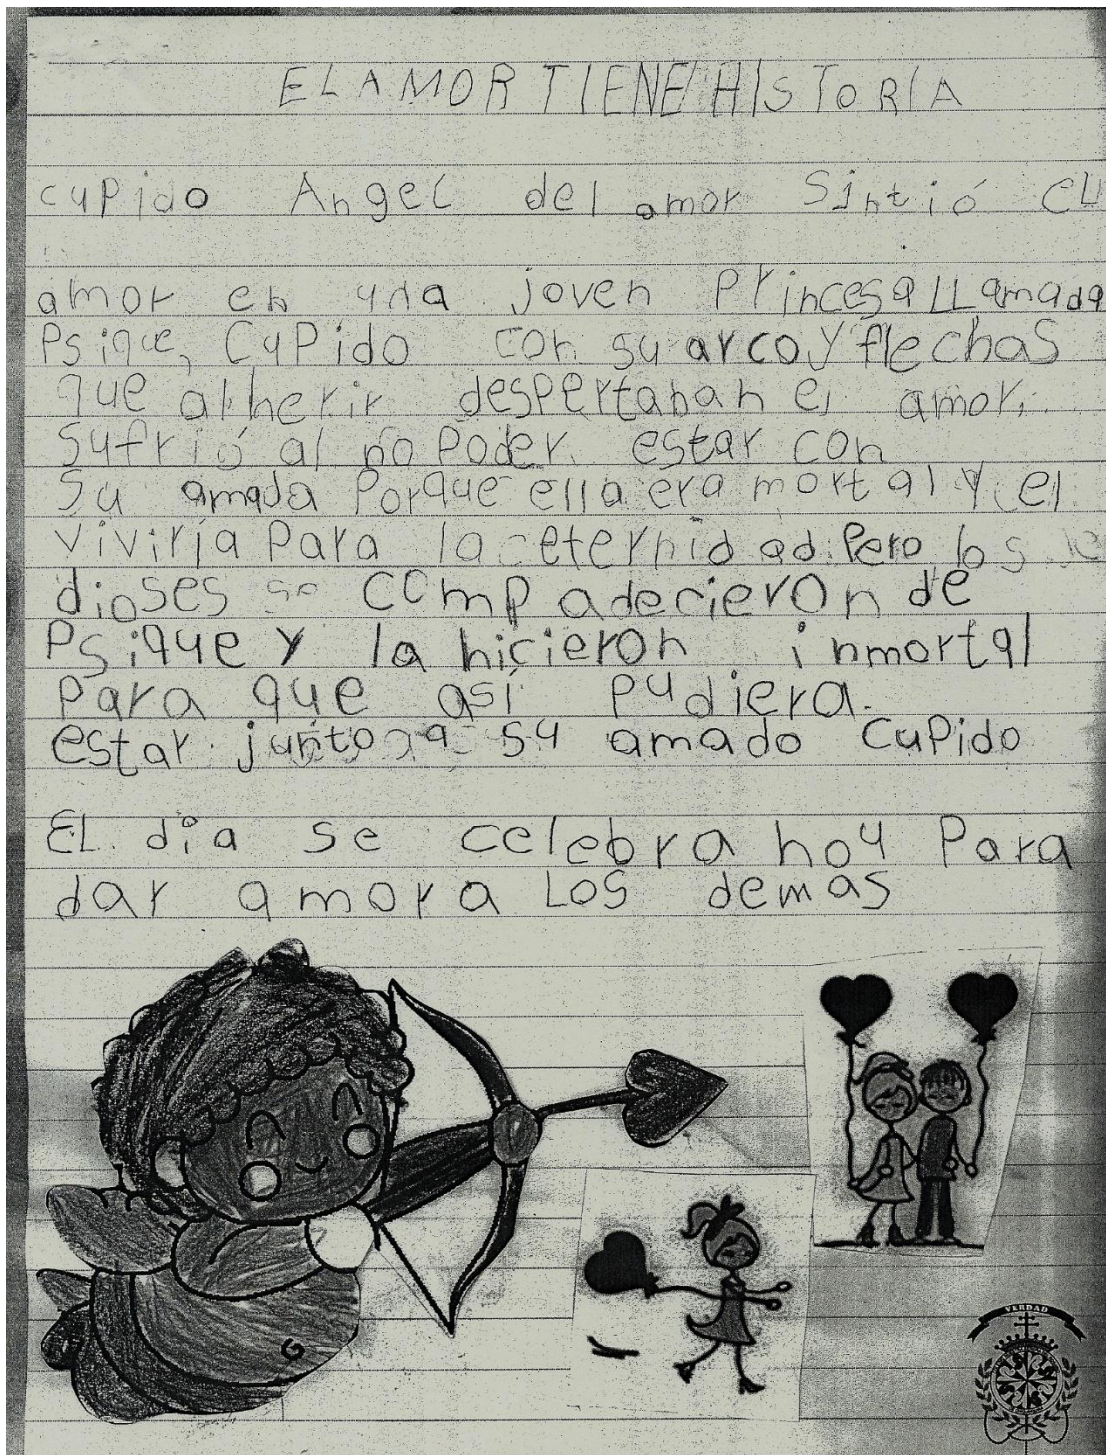 EL AMOR TIENE HISTORIA
cupido Angel del amor Sintió el
amor en una joven Princesa LLamada
Psique, Cupido con su arco y flechas
que al herir despertaban el amor,
sufrió al no Poder estar con
Su amada Porque ella era mortal y el
viviría Para la eternidad. Pero los
dioses se compadecieron de
Psique y la hicieron inmortal
Para que así pudiera.
estar junto a su amado Cupido
EL día se celebra hoy Para
dar amor a Los demas
G
VERDAD